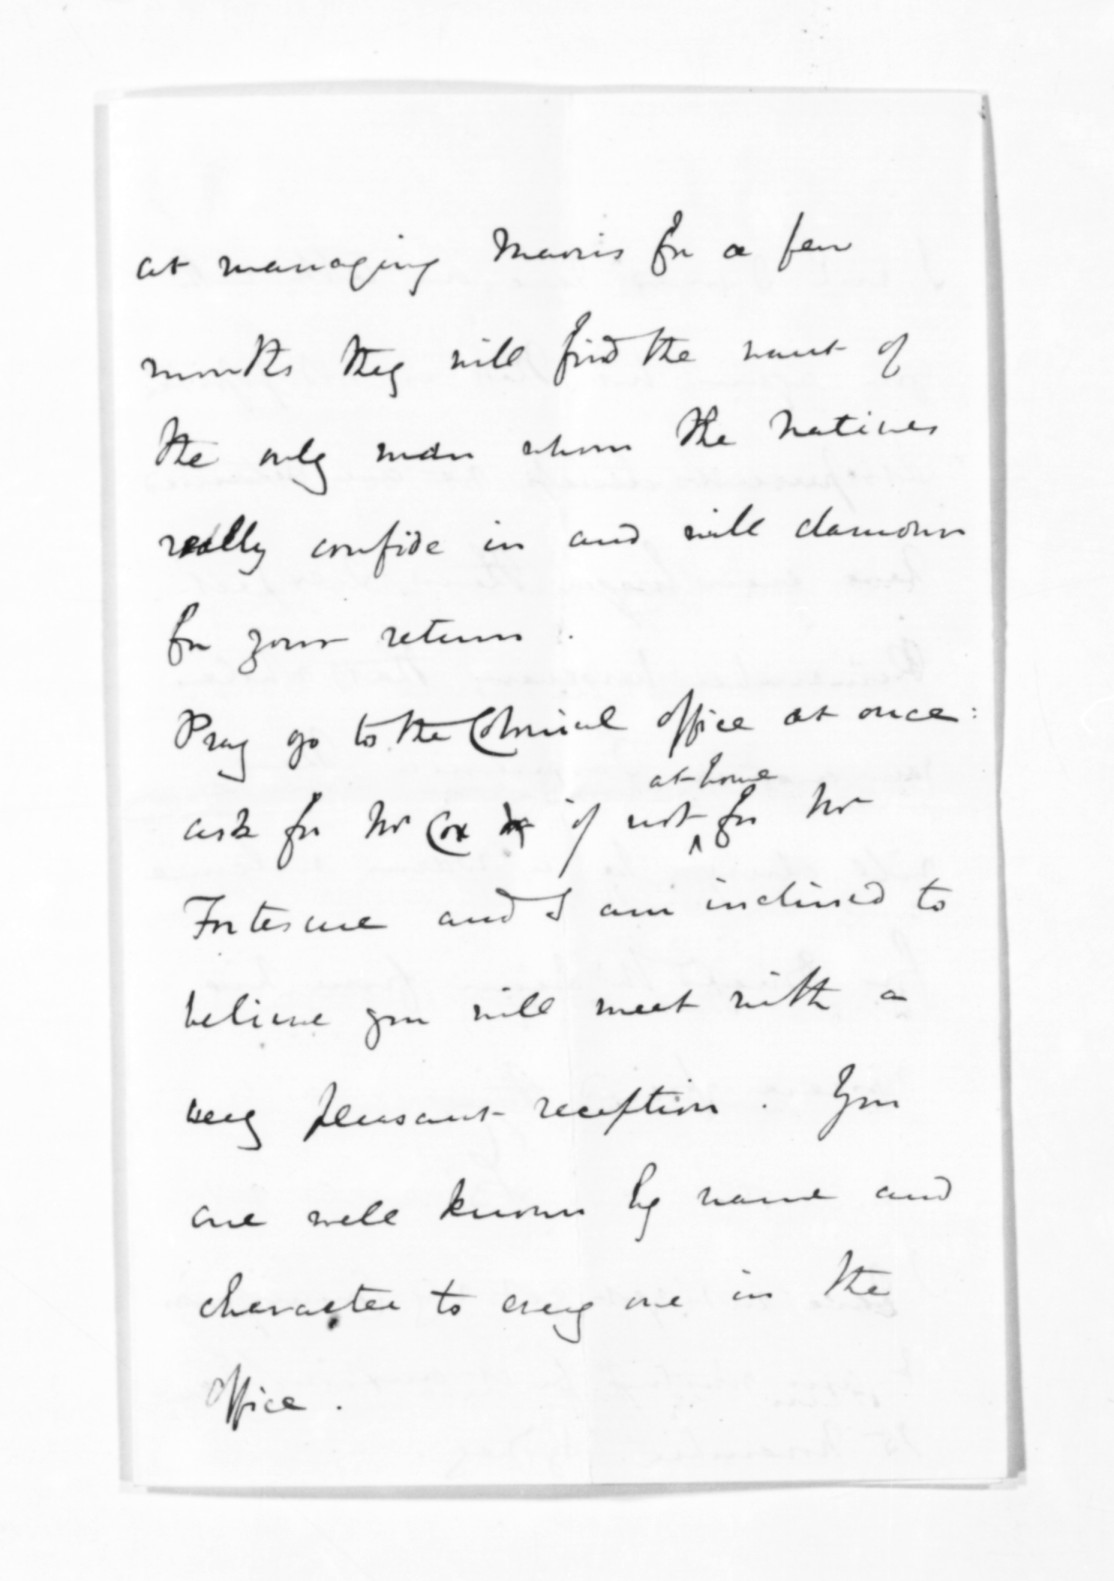 at managing Maoris for a few
months they will find the want of
the only man whom the Natives
really confide in and will clamour
for your return.
Pray go to the Colonial office at once:
at home
ask for Mr Cox if not ^ for Mr
Fortescue and I am inclined to
believe you will meet with a
very pleasant reception. You
are well known by name and
character to every one in the
office.